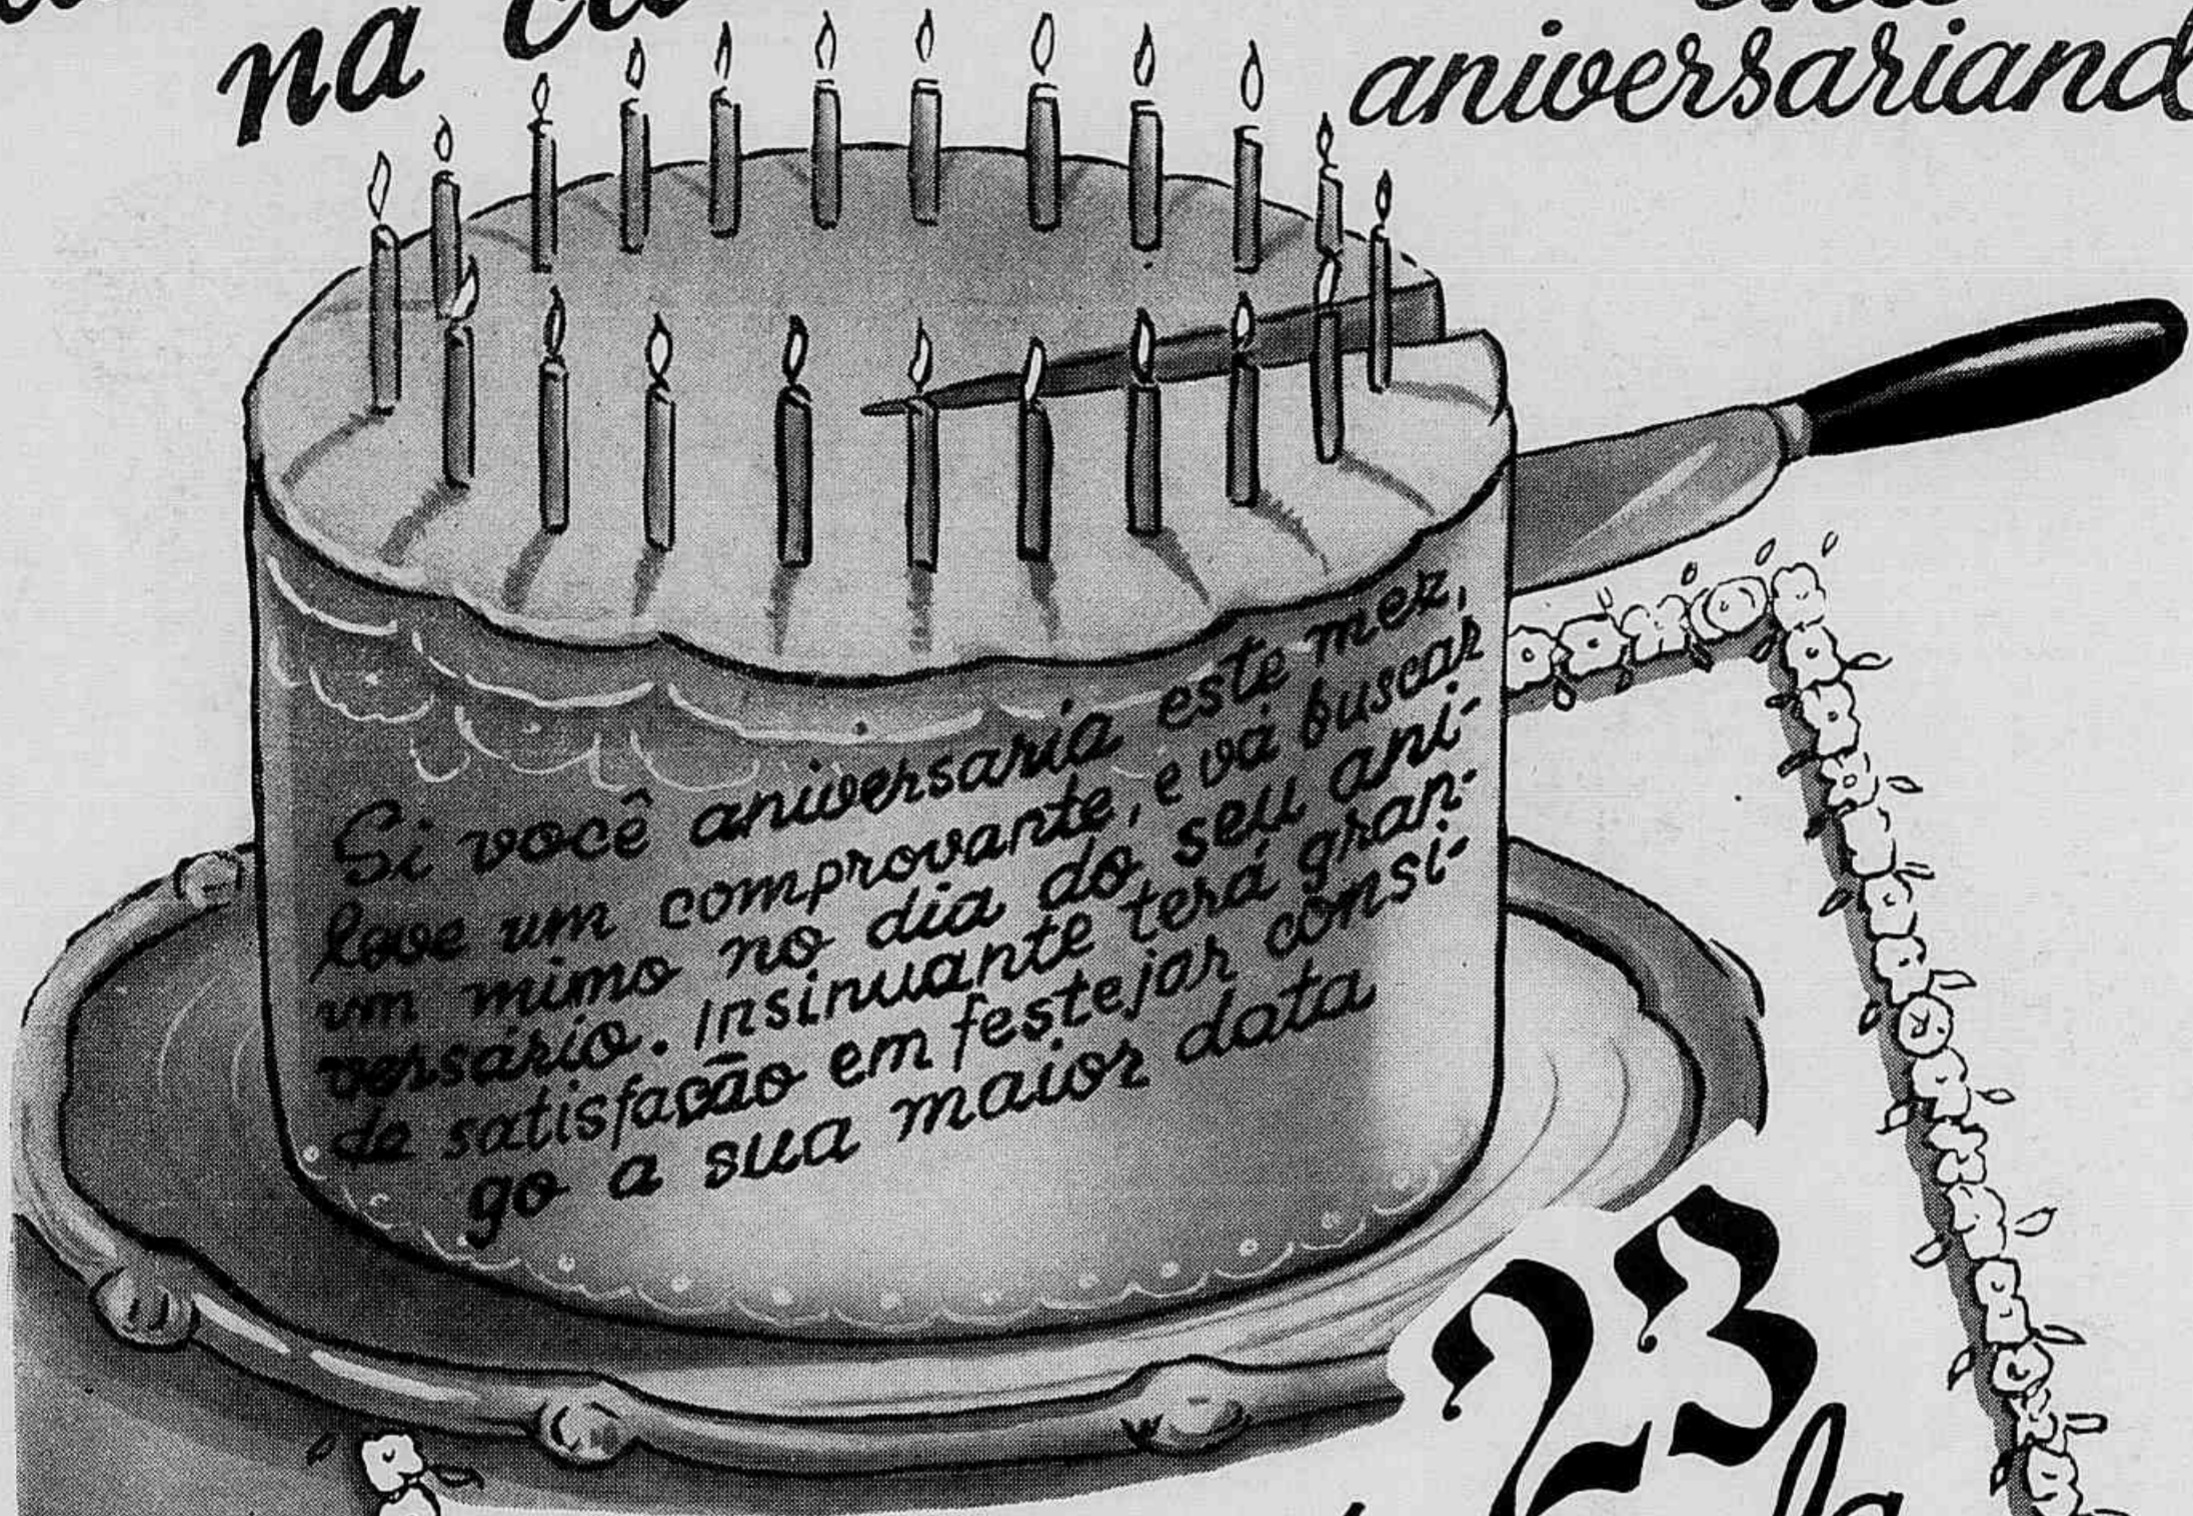 na
aniversariand
Si você aniversaria este mez,
leve um comprovante, e vá buscar
um mimo no dia do seu ani-
versário. Insinuante terá gran-
de satisfação em festejar consi-
go a sua maior data
23